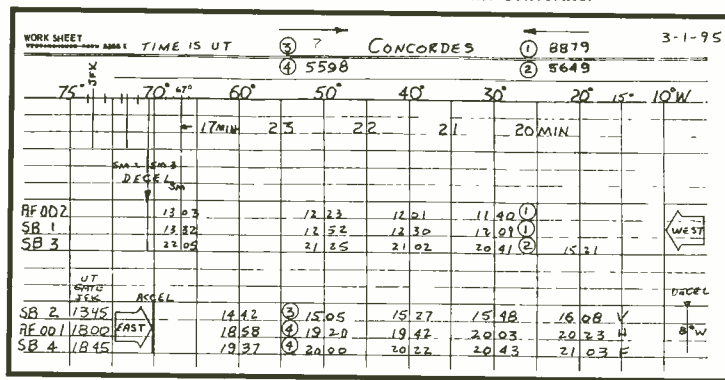 WORK SHEET TIME IS UT ③ ? CONCORDES ① 8879 3-1-95
④ 5598 ② 5649
JFK
75° 70° 67° 60° 50° 40° 30° 20° 15° 10°W
← 17MIN 23 22 21 20 MIN
SM-2 SM 3
DECEL
SM
AF002 13 03 12 23 12 01 11 40 ①
SB 1 13 32 12 52 12 30 12 09 ① WEST
SB 3 22 05 21 25 21 02 20 41 ② 15 21
UT
GATE
JFK ACCEL DECEL
SB 2 1345 14 42 ③ 15 05 15 27 15 48 16 08 V
AF 001 1800 EAST 18 58 ④ 19 20 19 42 20 03 20 23 H 8°W
SB 4 1845 19 37 ④ 20 00 20 22 20 43 21 03 F